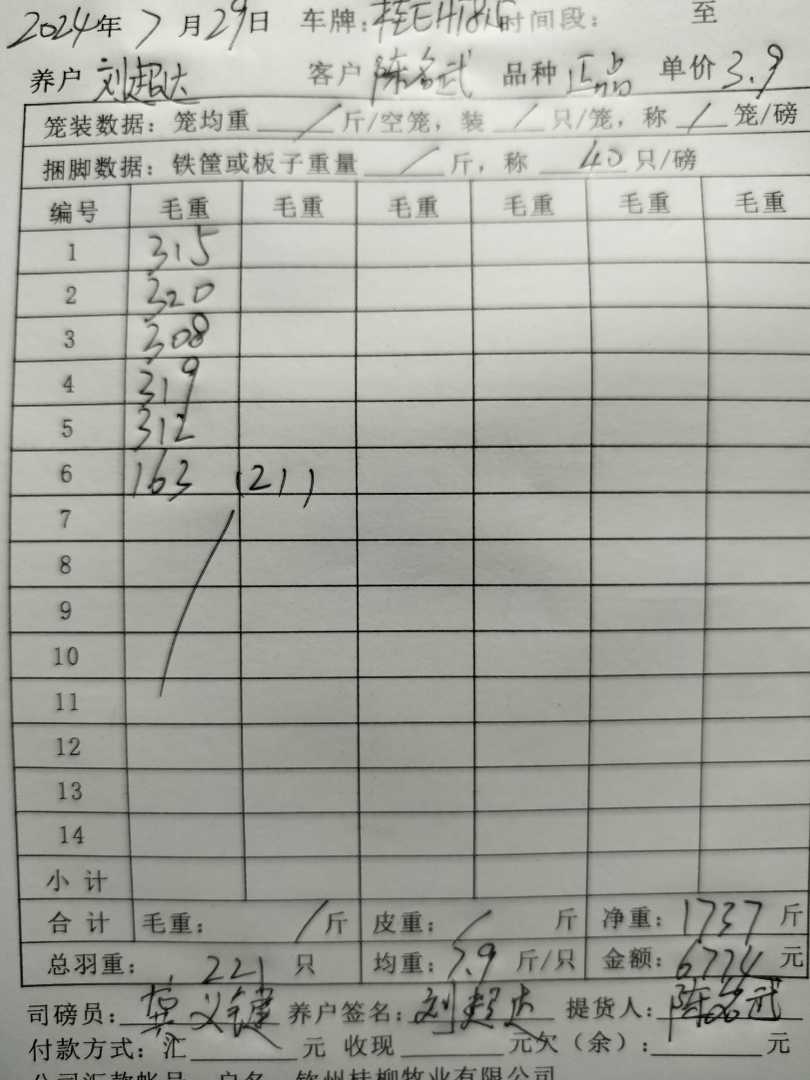 2024年7月29日 车牌: 时间段: 至
养户 刘超达 客户 陈名武 品种 正品 单价 3.9
笼装数据: 笼均重 / 斤/空笼, 装 / 只/笼, 称 / 笼/磅
捆脚数据: 铁筐或板子重量 / 斤, 称 40 只/磅
编号 毛重 毛重 毛重 毛重 毛重 毛重
1 315
2 320
3 308
4 319
5 312
6 163 (21)
7
8
9
10
11
12
13
14
小计
合计 毛重: / 斤 皮重: / 斤 净重: 1737 斤
总羽重: 221 只 均重: 7.9 斤/只 金额: 6774 元
司磅员: 莫义 养户签名: 刘超达 提货人: 陈名武
付款方式: 汇 元 收现 元欠(余): 元
公司汇款帐号 户名 钦州桂柳牧业有限公司